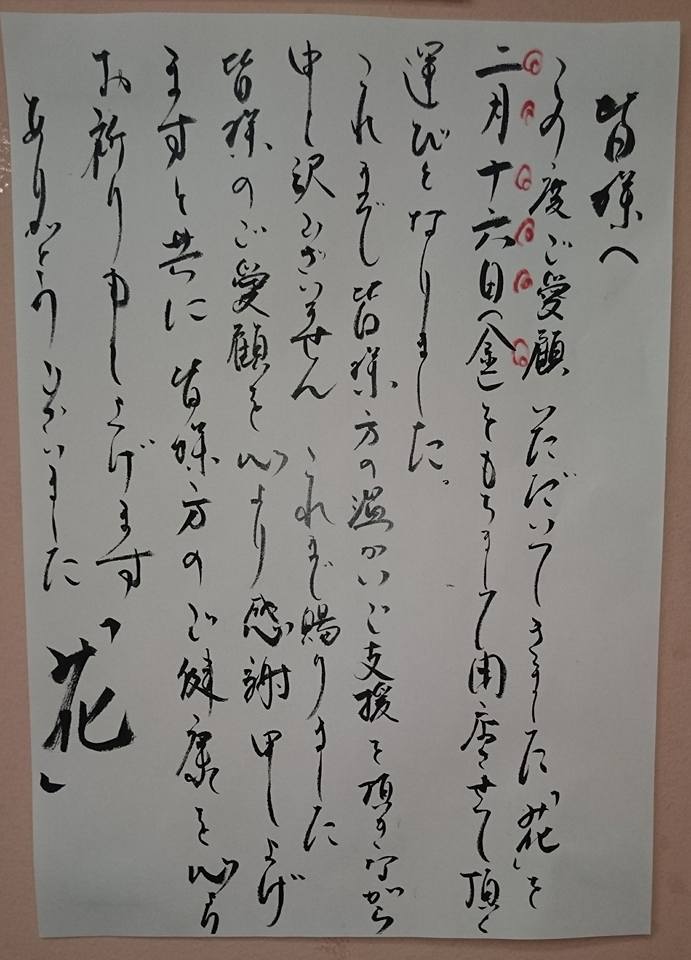 皆様へ
この度ご愛顧いただいてきました「花」を
二月十六日(金)をもちまして閉店させて頂く
運びとなりました。
これまで皆様方の温かいご支援を頂きながら
申し訳ございません これまで賜りました
皆様のご愛顧を心より感謝申し上げ
ますと共に皆様方のご健康を心より
お祈り申し上げます
ありがとうございました 「花」